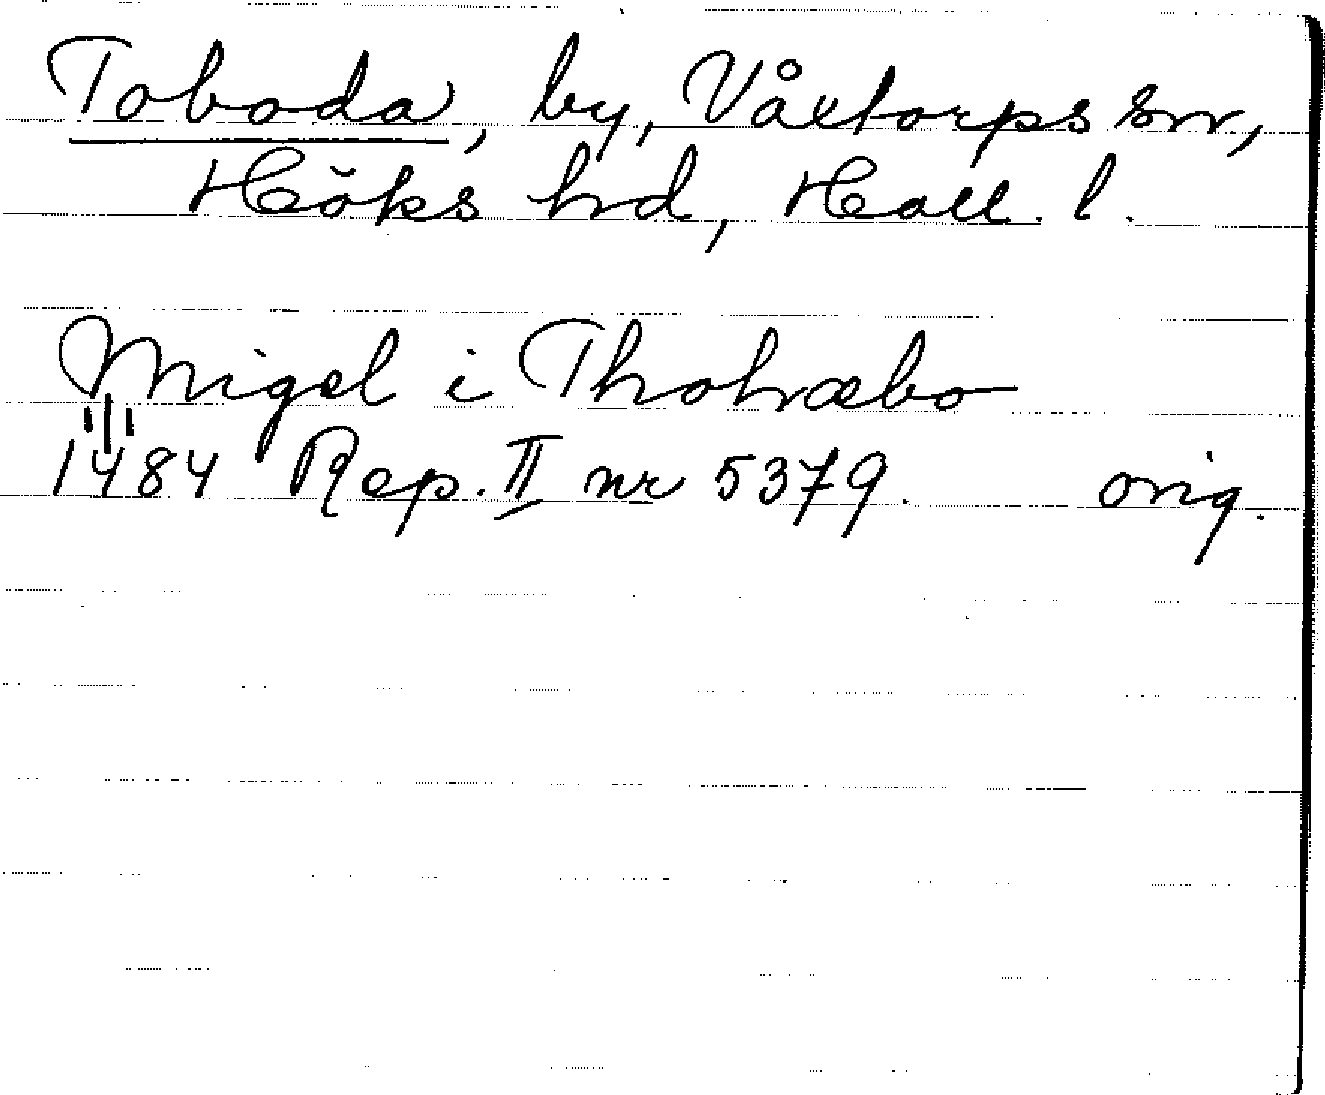 Toboda, by, Våxtorps sn,
Höks hd, Hall. l.
Migel i Thohræbo
1484 Rep. II nr 5379. orig.